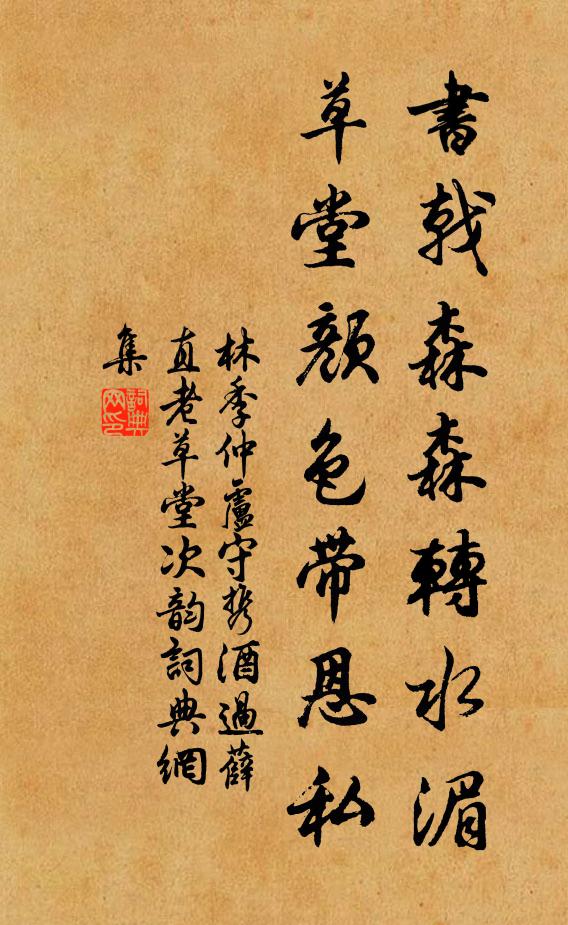 書戟森森轉水湄
草堂顏色帶恩私
林季仲盧守携酒過薛
直老草堂次韵詞典網
集
詞典
网印